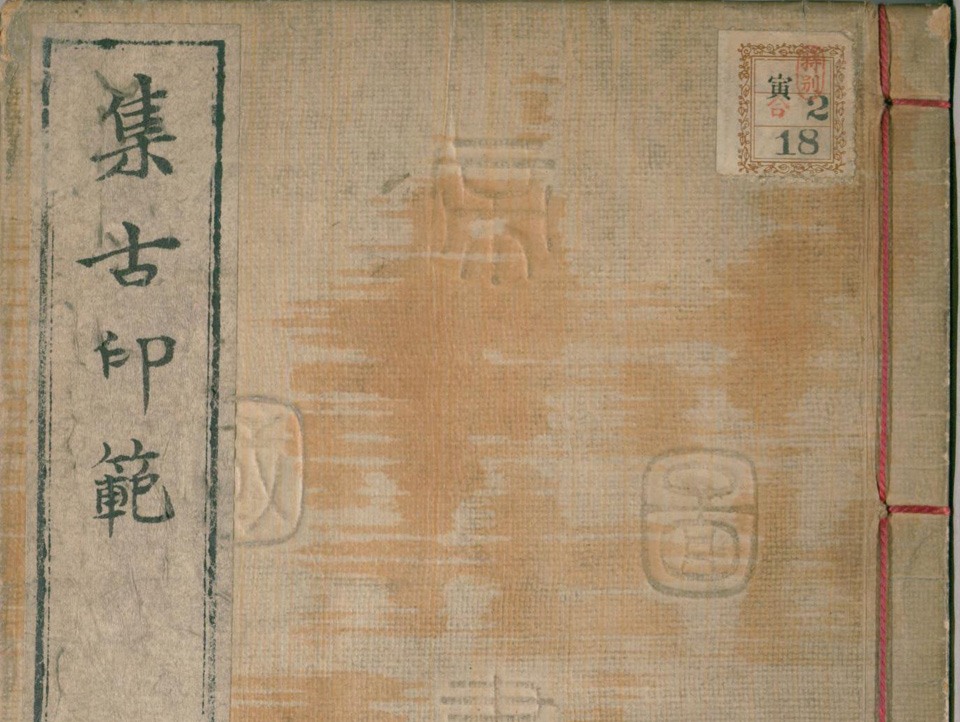 集古印範
特別
寅
2
18